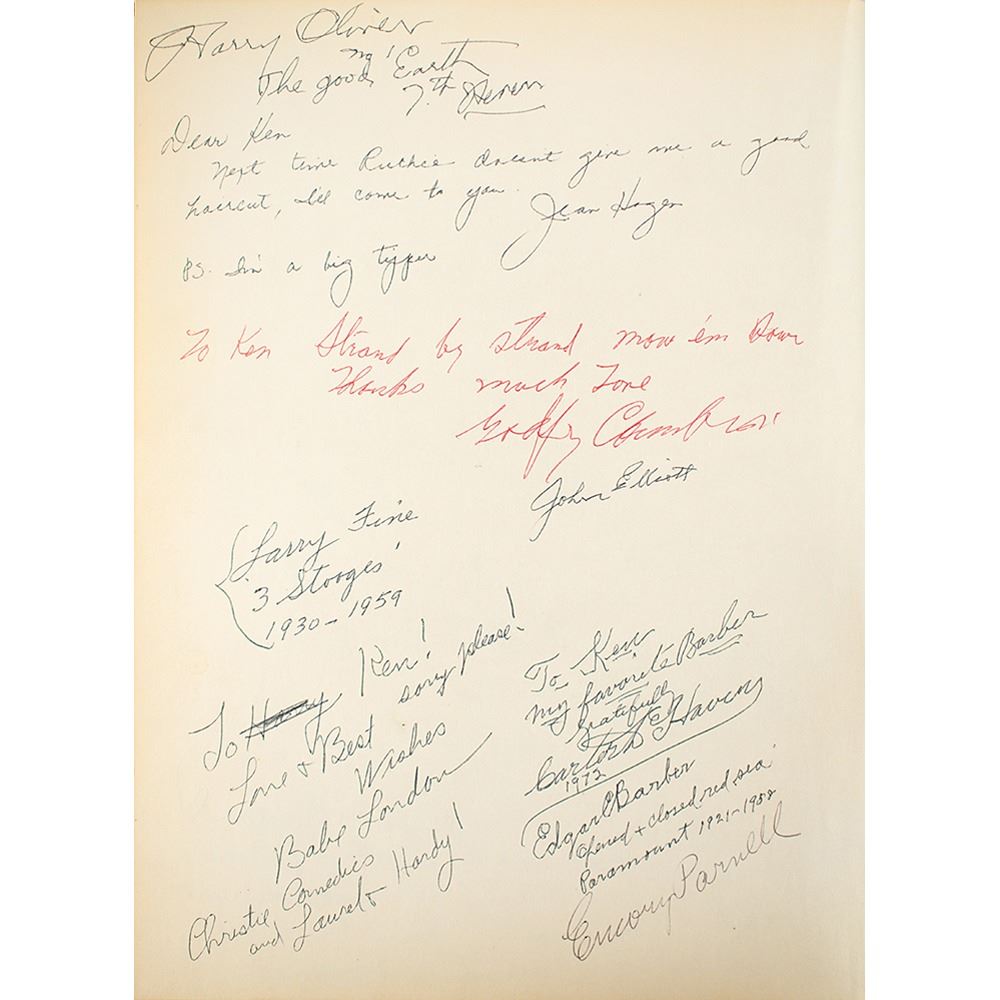 Harry Oliver
The good Earth
7th Heven
Dear Ken
Next time Ruthie doesnt give me a good
haircut, I'll come to you.
Jean Hagen
PS. I'm a big tipper
To Ken Strand by strand mow 'em Down
Thanks much Love
Godfrey Cambridge
John Elliott
Larry Fine
3 Stooges
1930 - 1959
To Harry Ken!
sorry please!
Love & Best
Wishes
Babe London
Christie Comedies
and Laurel & Hardy!
To Ken
my favorite Barber
Gratefully
Carter De Haven
1972
Edgar C Barber
Opened + closed red sea
Paramount 1921-1958
Emory Parnell